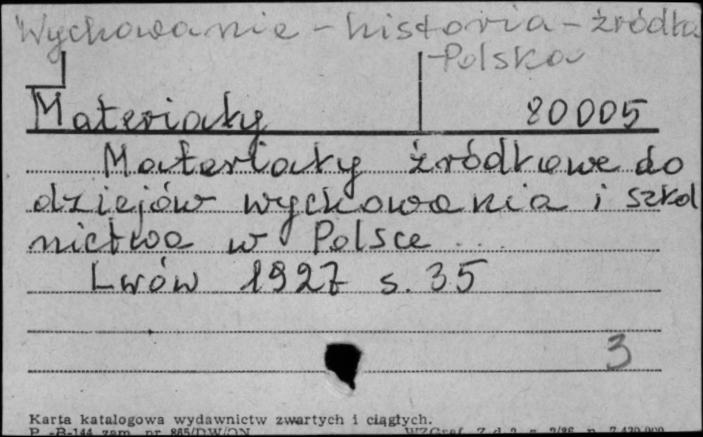 Wychowanie - historia - źródła
- Polska
Materiały 80005
Materiały źródłowe do
dziejów wychowania i szkol
nictwa w Polsce ...
Lwów 1927 s. 35
3
Karta katalogowa wydawnictw zwartych i ciągłych.
P.-B-144 zam. nr 865/DW/ON